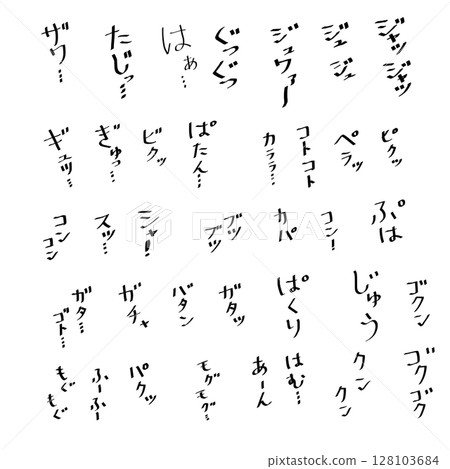 ジャッジャッ
ジュジュ
ジュワァー
ぐつぐつ
はぁ…
たじっ…
ザワ…
ピクッ
ペラッ
コトコト
カララ…
ぱたん…
ビクッ
ぎゅっ…
ギュッ…
ぷは
コシー
カパ
ブツブツ
シャー!
スッ…
コンコン
ゴクン
じゅう
ぱくり
ガタッ
バタン
ガチャ
ガタ…
ゴト…
ゴクゴク
クンクン
はむ…
あーん
モグモグ…
パクッ
ふーふー
もぐもぐ
PIXTA
pixta.jp - 128103684